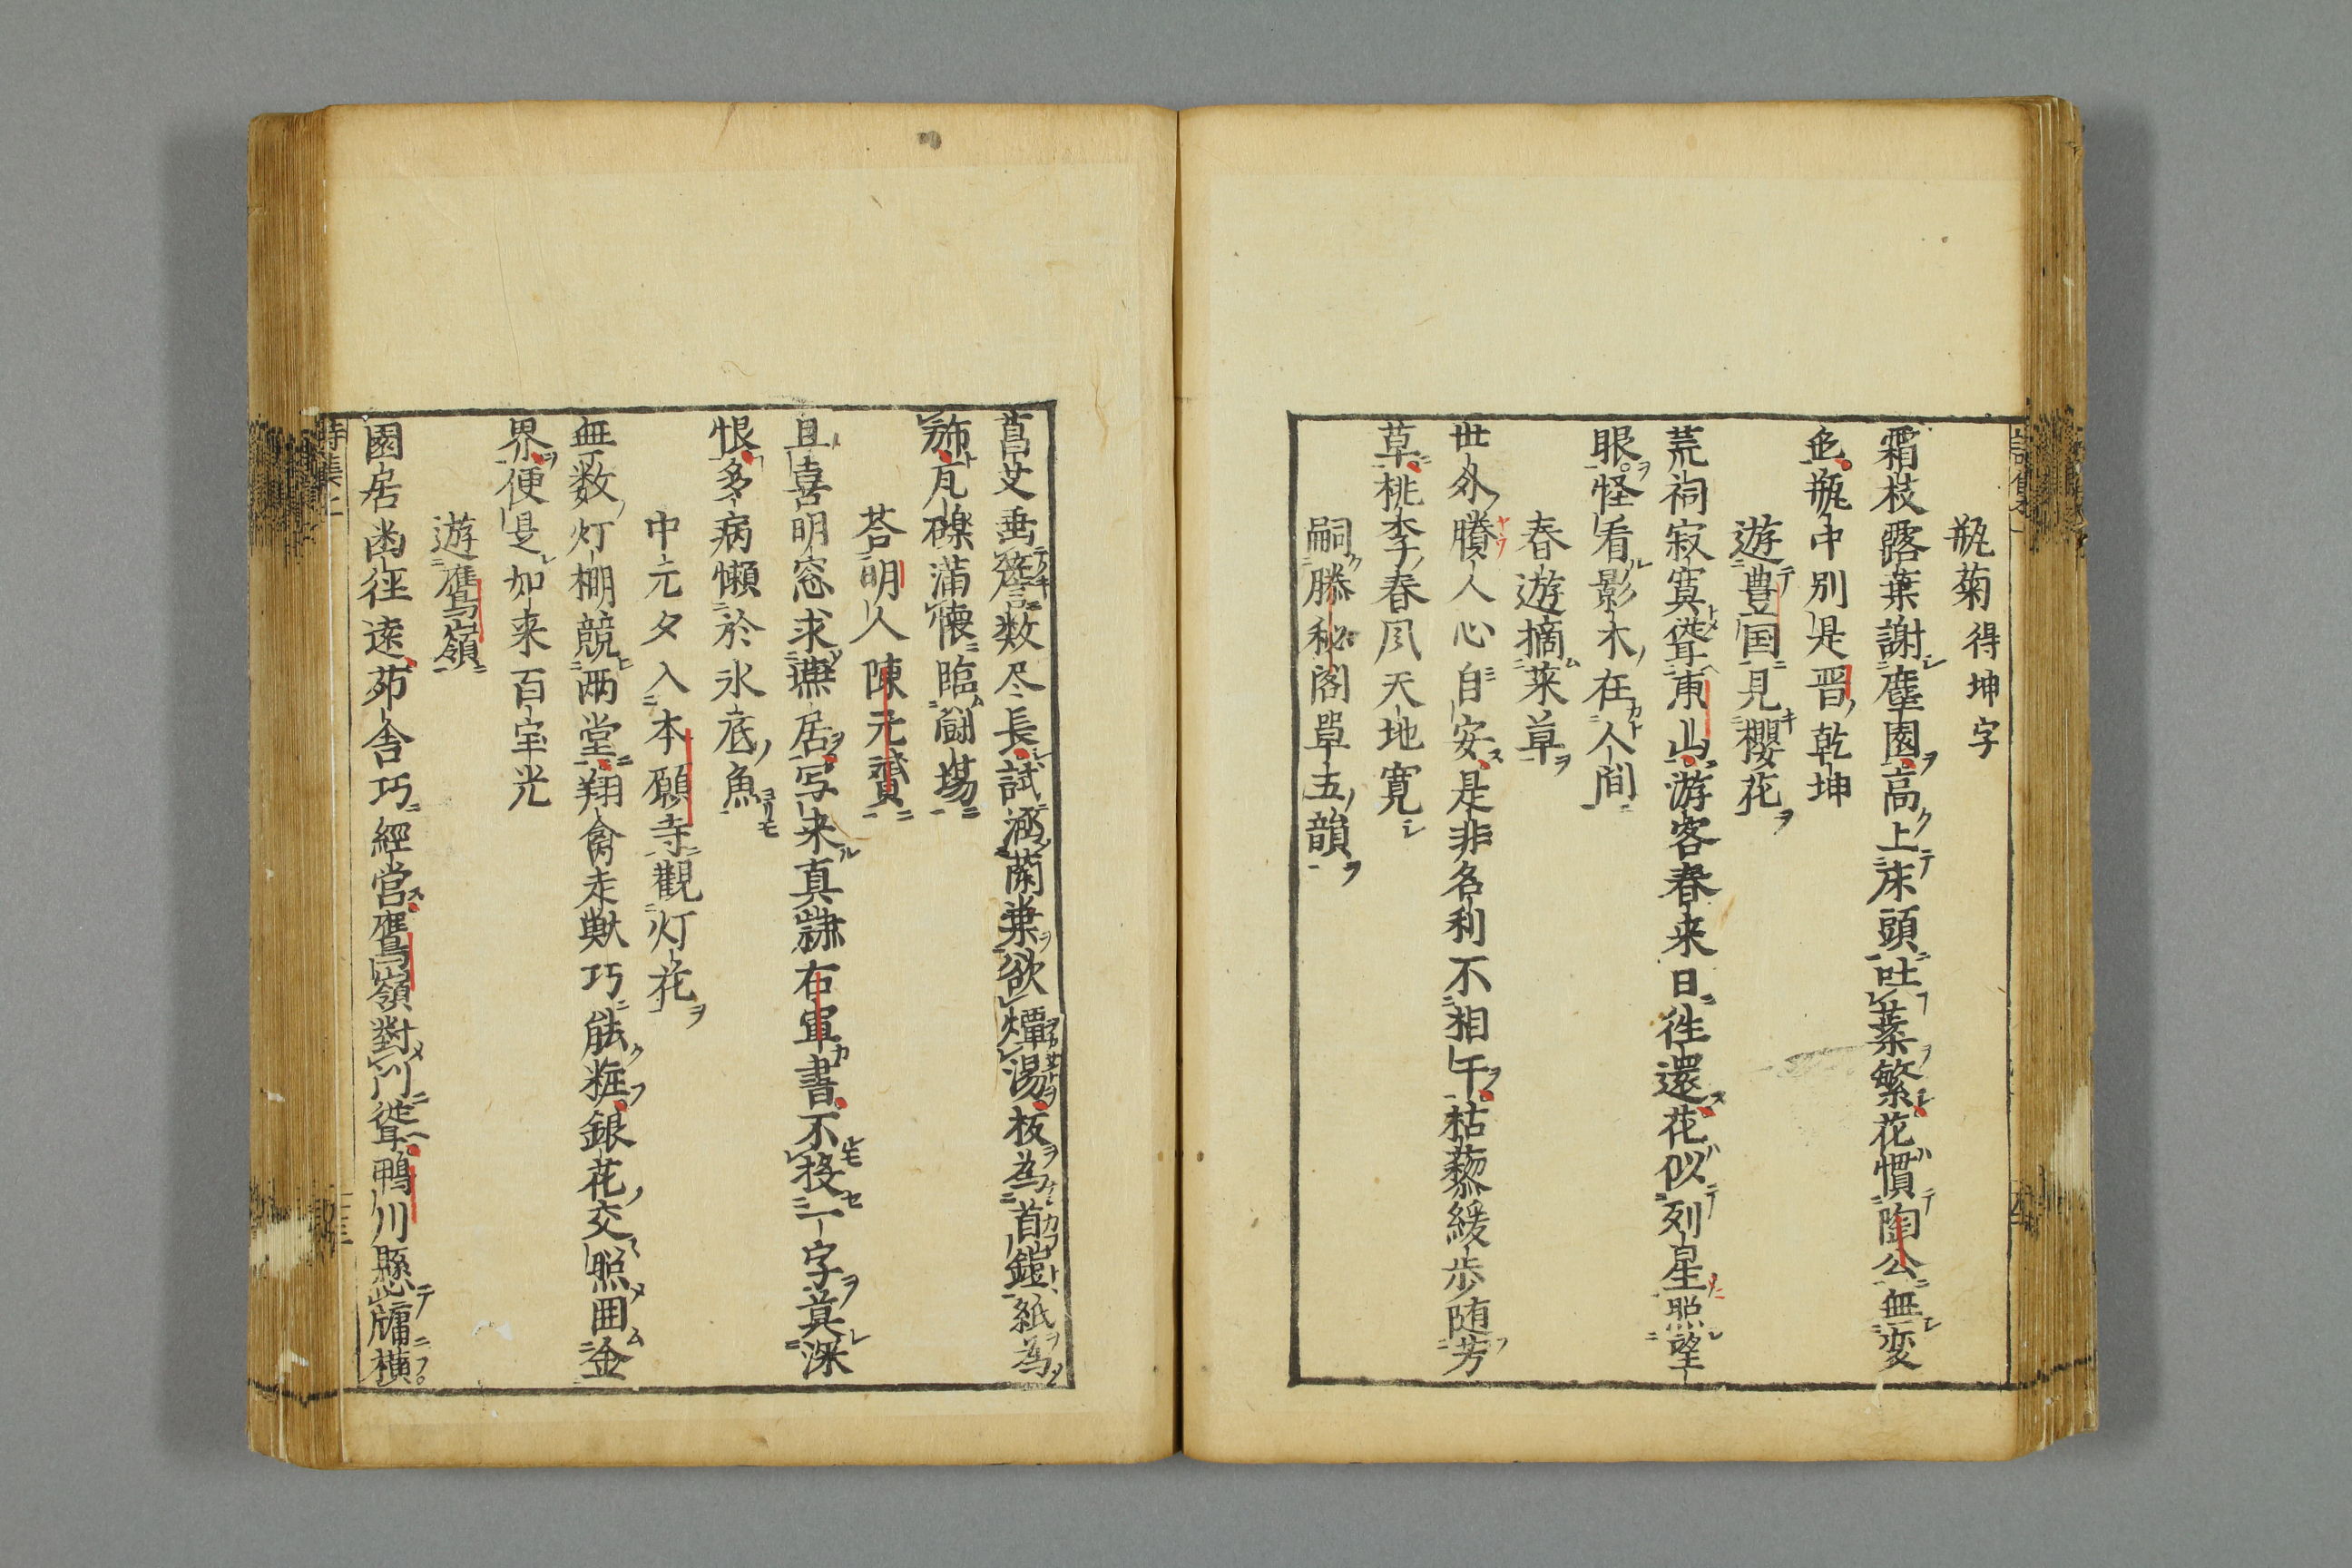 瓶菊得坤字
霜枝露葉謝塵園高上床頭吐蘂繁花慣陶公無変
色瓶中別是晋乾坤
遊豊国見櫻花
荒祠寂寞聳東山游客春来日往還花似列星照望
眼怪看影木在人間
春遊摘菜草
世外賸人心自安是非名利不相干枯藜緩歩随芳
草桃李春風天地寛
嗣滕秘閣単五韻
菖艾垂簷数尽長試涵蘭葉欲燂湯板為首鎧紙為
斾瓦礫蒲懐臨闘場
荅明人陳元贇
且喜明窓求蕪居写来真隷右軍書不投一字莫深
恨多病懶於氷底魚
中元夕入本願寺觀灯花
無数灯棚競両堂翔禽走獣巧能粧銀花交照囲金
界便是如来百宝光
遊鷹嶺
園居幽徑遠茆舎巧經営鷹嶺對門聳鴨川懸牗横